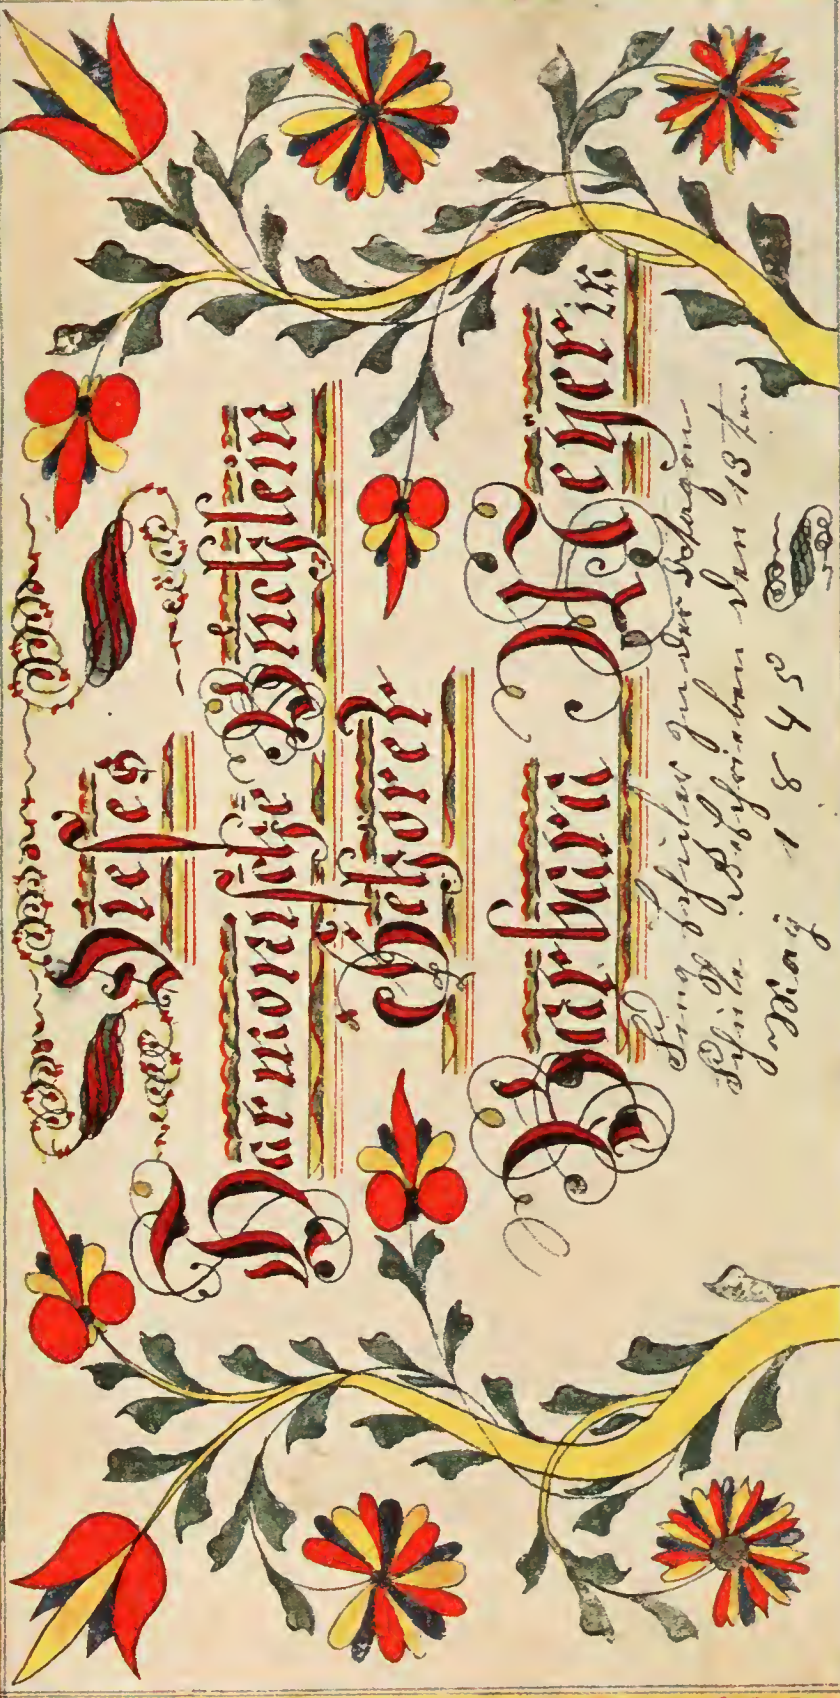 Dieses
Harmonische Büchlein
Gehöret
Barbara Meyerin
Sing schüler in der
Schule. Geschrieben den 13ten
May 1845